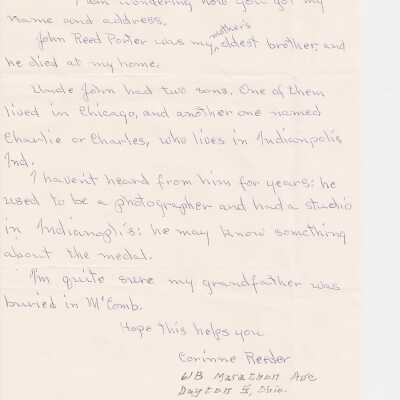 I am wondering how you got my
name and address.
John Reed Porter was my mother's eldest brother, and
he died at my home.
Uncle John had two sons. One of them
lived in Chicago, and another one named
Charlie or Charles, who lives in Indianpolis
Ind.
I haven't heard from him for years: he
used to be a photographer and had a studio
in Indianoplis: he may know something
about the medal.
I'm quite sure my grandfather was
buried in McComb.
Hope this helps you
Corinne Reeder
Marathon Ave
Dayton 5, Ohio.